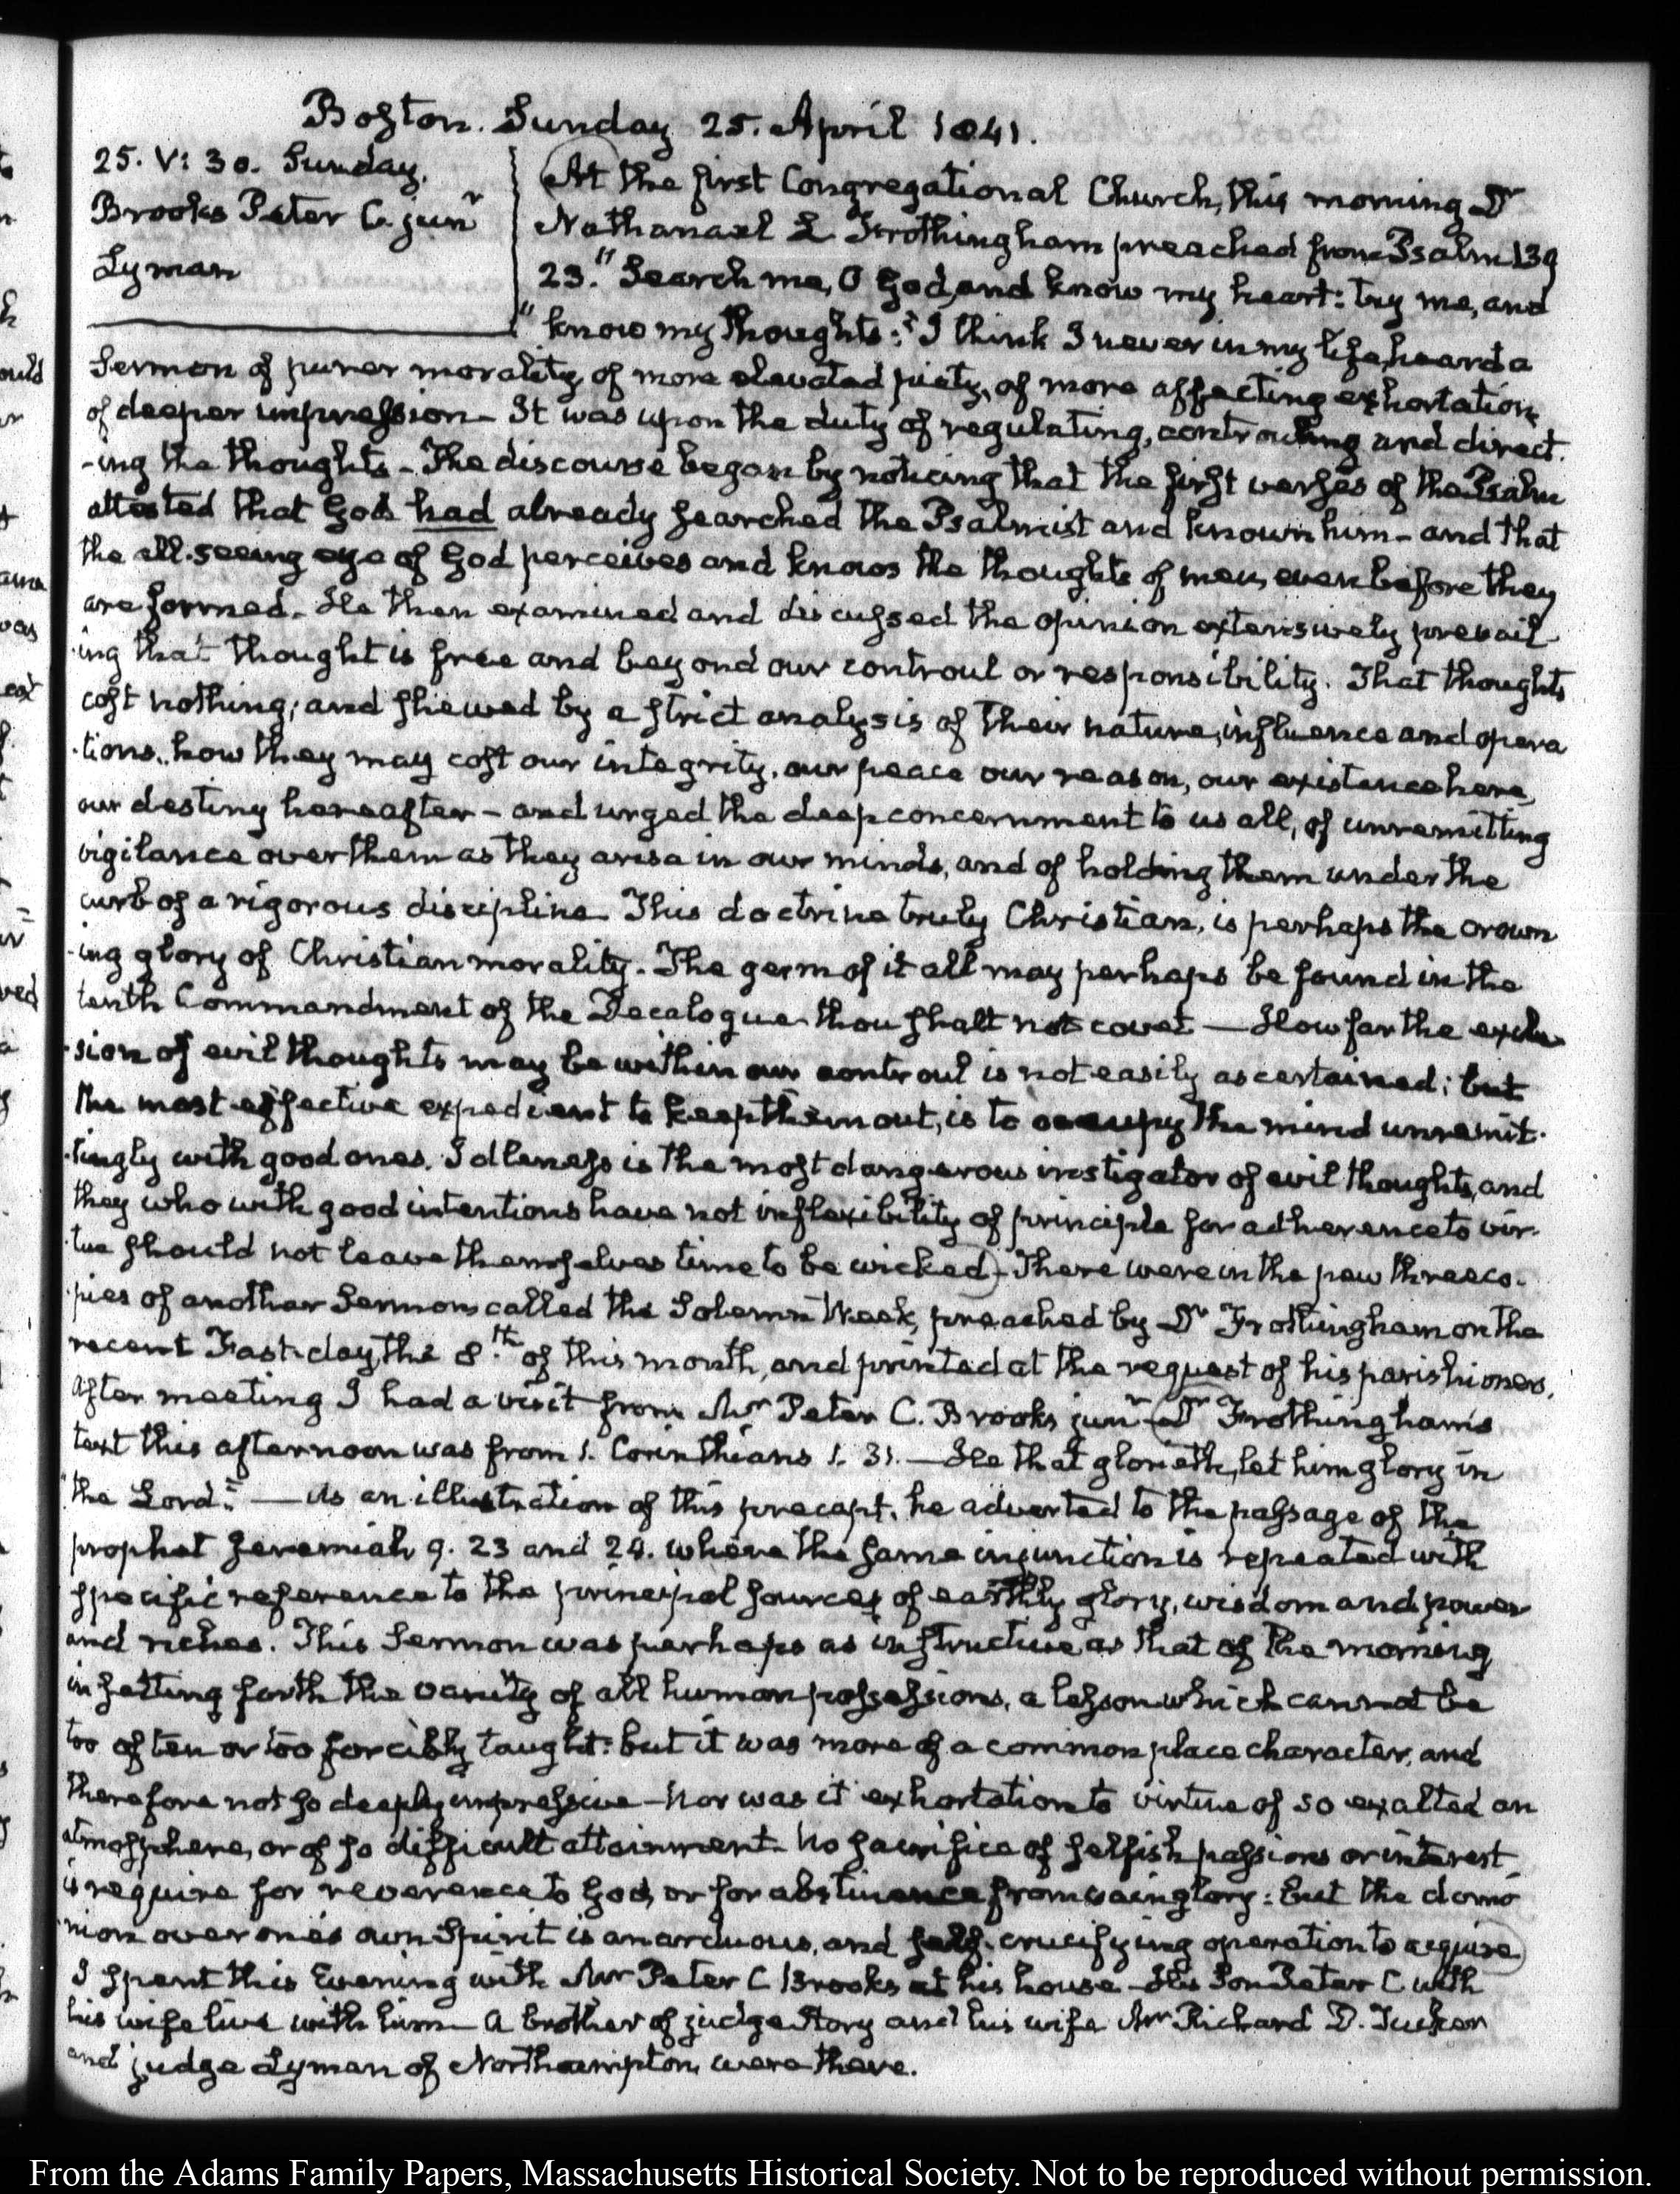 Boston. Sunday 25. April 1841.
25. V: 30. Sunday.
Brooks Peter C. junr
Lyman
At the first Congregational Church, this morning Dr
Nathanael L Frothingham preached from Psalm 139
23. "Search me, O God, and know my heart: try me, and
"know my thoughts:" I think I never in my life, heard a
Sermon of purer morality, of more elevated piety, of more affecting exhortation,
of deeper impression— It was upon the duty of regulating, controuling and direct-
-ing the thoughts— The discourse began by noticing that the first verses of the Psalm
attested that God had already searched the Psalmist and known him— and that
the all-seeing eye of God perceives and knows the thoughts of men, even before they
are formed. He then examined and discussed the opinion extensively prevail-
-ing that thought is free and beyond our controul or responsibility. That thoughts
cost nothing; and shewed by a strict analysis of their nature, influence and opera
-tions, how they may cost our integrity, our peace our reason, our existence here,
our destiny hereafter— and urged the deep concernment to us all, of unremitting
vigilance over them as they arise in our minds, and of holding them under the
curb of a rigorous discipline. This doctrine truly Christian, is perhaps the crown
-ing glory of Christian morality. The germ of it all may perhaps be found in the
tenth Commandment of the Decalogue thou shalt not covet — How far the exclu
-sion of evil thoughts may be within our controul is not easily ascertained; but
the most effective expedient to keep them out, is to occupy the mind unremit-
-tingly with good ones. Idleness is the most dangerous instigator of evil thoughts, and
they who with good intentions have not inflexibility of principle for adherence to vir-
-tue should not leave themselves time to be wicked)— There were in the pew three co-
-pies of another Sermon called the Solemn Week, preached by Dr Frothingham on the
recent Fast-day, the 8th of this month, and printed at the request of his parishioners.
After meeting I had a visit from Mr Peter C. Brooks junr (Dr Frothinghams
text this afternoon was from 1. Corinthians 1. 31. — He that glorieth, let him glory in
"the Lord." — As an illustration of this precept, he adverted to the passage of the
prophet Jeremiah 9. 23 and 24. where the same injunction is repeated with
specific reference to the principal sources of earthly glory, wisdom and power
and riches. This Sermon was perhaps as instructive as that of the morning
in setting forth the vanity of all human possessions, a lesson which cannot be
too often or too forcibly taught: but it was more of a common place character, and
therefore not so deeply impressive— Nor was it exhortation to virtue of so exalted an
atmosphere, or of so difficult attainment. No sacrifice of selfish passions or interest
is require for reverence to God, or for abstinence from vainglory: but the domi
-nion over one's own Spirit is an arduous, and self-crucifying operation to acquire)
I spent this Evening with Mr Peter C Brooks at his house— His Son Peter C with
his wife live with him— A brother of judge Story and his wife Mr Richard D. Tucker
and judge Lyman of Northampton, were there.
From the Adams Family Papers, Massachusetts Historical Society. Not to be reproduced without permission.